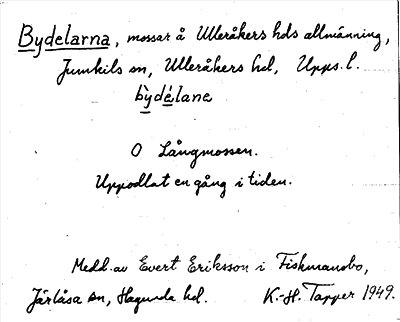 Bydelarna, mossar å Ulleråkers hds allmänning,
Jumkils sn, Ulleråkers hd, Upps. l.
by̆délanɐ
O Långmossen.
Uppodlat en gång i tiden.
Medd. av Evert Eriksson i Fiskmansbo,
Järlåsa sn, Hagunda hd. K.-H. Tapper 1949.